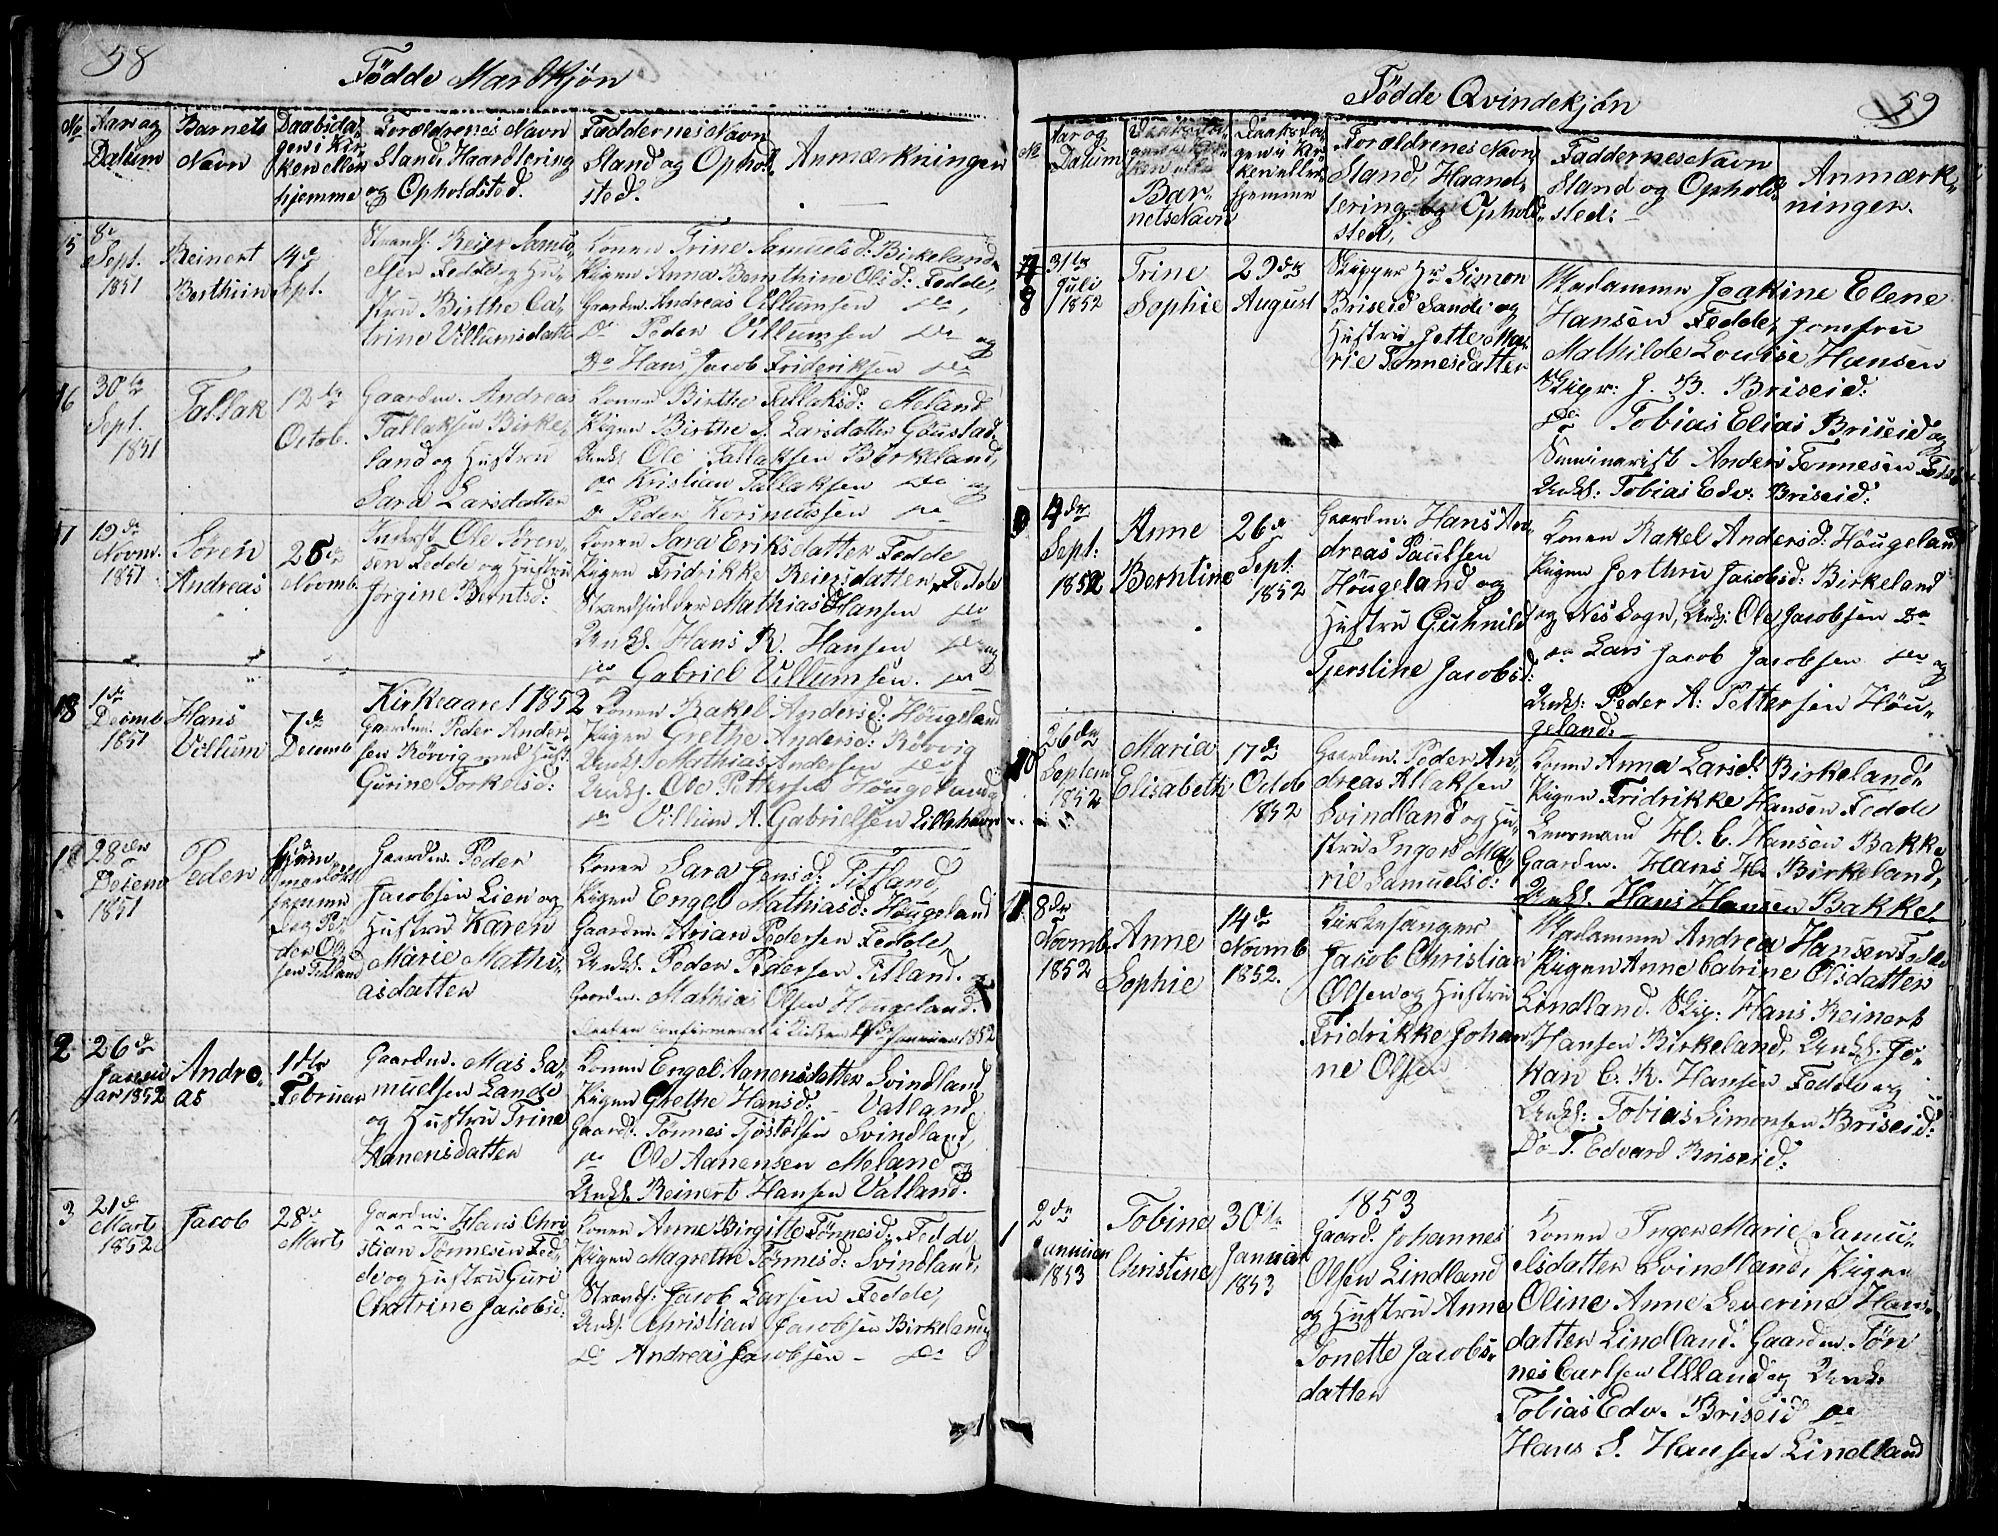 58
Födde Mandkjön
No
Aar og
Datum
Barnets
Navn
Daabsda-
gen i Kir-
ken eller
hjemme
Forældrenes Navn
Stand, Haandtering
og Opholdsted.
Faddernes Navn
Stand og Ophol-
sted.
Anmærkninger
5
8de
Sept.
1851
Reinert
Berthin
14de
Sept.
Strands. Reier Samu-
elsen Fedde og Hu-
stru Birthe Ca-
trine Villumsdatter
Konen Trine Samuelsd. Birkeland
Pigen Anna Bernthine Olsd: Fedde,
Gaardm. Andreas Villumsen do,
do Peder Villumsen do og
Do Hans Jacob Frideriksen do
16
30te
Sept.
1851
Tallak
12te
Octob.
Gaardm. Andreas
Tallaksen Birke-
land og Hustru
Sara Larsdatter
Konen Birthe Tallaksd: Meland
Pigen Birthe S. Larsdatter Göustad,
Unks. Ole Tallaksen Birkeland,
do Kristian Tallaksen do og
do Peder Rasmussen do
17
19de
Novm.
1851
Sören
Andreas
Novemb.
Inderst Ole Sören-
sen Fedde og Hustru
Jörgine Berntsd:
Konen Sara Eriksdatter Fedde
Pigen Fridrikke Reiersdatter Fedde
Strandsidder Mathias Hansen do
Unks. Hans R. Hansen do og
do Gabriel Villumsen. do
18
1ste
Decmb
1851
Hans
Villum
7de
Decemb
Kirkeaaret 1852
Gaardm. Peder Ander-
sen Rörvig med Hust.
Gurine Torkelsd:
Konen Rakel Andersd: Höugeland
Pigen Grethe Andersd: Rörvig
Unks. Mathias Andersen do
Unks. Ole Pettersen Höugeland
do Villum A. Gabrielsen Lillehavn
19
28de
Decem
1851
Peder
hjem-
medöbt
samme
Dag Pe-
der Ol-
sen Titland
Gaardm. Peder
Jacobsen Lien og
Hustru Karen
Marie Mathi-
asdatter
Konen Sara Jensd: Titland,
Pigen Engel Mathiasd: Höugeland
Gaardm. Arian Pedersen Fedde,
Unks. Peder Pedersen Titland. og
Gaardm. Mathias Olsen Höugeland.
Daaben confirmeret i Kirken Januar 1852
2
26de
Janu-
ar 1852
Andre-
as
1ste
Februar
Gaardm. Mas Sa-
muelsen Lande
og Hustru Trine
Aanensdatter
Konen Engel Aanensdatter Svindland
Pigen Grethe Hansd: Vatland
Gaardm. Tönnes Tjöstolsen Svindland,
do Ole Aanensen Meland og
Unks. Reinert Hansen Vatland.
3
21de
Marts
1852
Jacob
28de
Marts
Gaardm. Hans Chri-
stian Tönnesen Fed-
de og Hustru Guri
Chatrine Jacobsd:
Konen Anne Birgitte Tönnesd: Fedde,
Pigen Magrethe Tönnesd: Svindland,
Strands: Jacob Larsen Fedde,
Unks. Christian Jacobsen Birkeland
do Andreas Jacobsen - do
59
Födde Qvindekjön
No
Aar og
Datum
Bar-
nets Navn
Daabsda-
gen i Kir-
ken eller
hjemme
Forældrenes Navn
Stand, Haand-
tering og Ophold-
sted,
Faddernes Navn
Stand og Ophold-
sted:
Anmærk-
ninger.
8
31te
Juli
1852
Trine
Sophie
29de
August
Skipper Hr Simon
Briseid Sande og
Hustru Jette Ma-
rie Tönnesdatter
Madammen Joakine Elene
Hansen Fedde, Jomfru
Mathilde Louise Hansen
Skipr: J. B. Briseid:
do Tobias Elias Briseid og
Seminarist Anders Tönnesen Fedde
Unks: Tobias Edv. Briseid:
9
4de
Sept:
1852
Anne
Berntine
26de
Sept:
1852
Gaardm. Hans An-
dreas Paulsen
Höugeland og
Hustru Gunnild
Tjerstine Jacobsd:
Konen Rakel Andersd: Höugeland
Pigen Jerthru Jacobsd: Birkeland
og Nes Sogn, Unks: Ole Jacobsen do
do Lars Jacob Jacobsen do og
Unks: Peder A: Pettersen Höu-
geland.
10
26de
Septem
1852
Maria
Elisabeth
17de
Octob
1852
Gaardm. Peder An-
dreas Atlaksen
Svindland og Hu-
stru Inger Ma-
rie Samuelsd:
Konen Anna Larsd: Birkeland
Pigen Fridrikke Hansen Fedde
Lensmand H. C. Hansen Bakke
Gaardm. Hans H. Birkeland,
Unks. Hans Hansen Bakke.
11
8de
Novmb
1852
Anne
Sophie
14de
Novmb
1852.
Kirkesanger
Jacob Christian
Olsen og Hustru
Fridrikke Johan-
ne Olsen
Madammen Andrea Hansen Fedde
Pigen Anne Catrine Olsdatter
Lindland. Skip: Hans Reinert
Hansen Birkeland, Unks. Jo-
kan C. R. Hansen Fedde og
Unks: Tobias Simonsen Briseid:
Do T. Edvard Briseid:
1853
1
2den
Januar
1853
Tobine
Christine
30te
Januar
1853
Gaard. Johannes
Olsen Lindland
og Hustru Anne
Tonette Jacobs-
datter
Konen Inger Marie Samu-
elsdatter Svindland, Pigen
Oline Anne Severine Hans-
datter Lindland. Gaardm. Tön-
nes Carlsen Ulland og Unks:
Tobias Edv. Briseid do
Hans S. Hansen Lindland